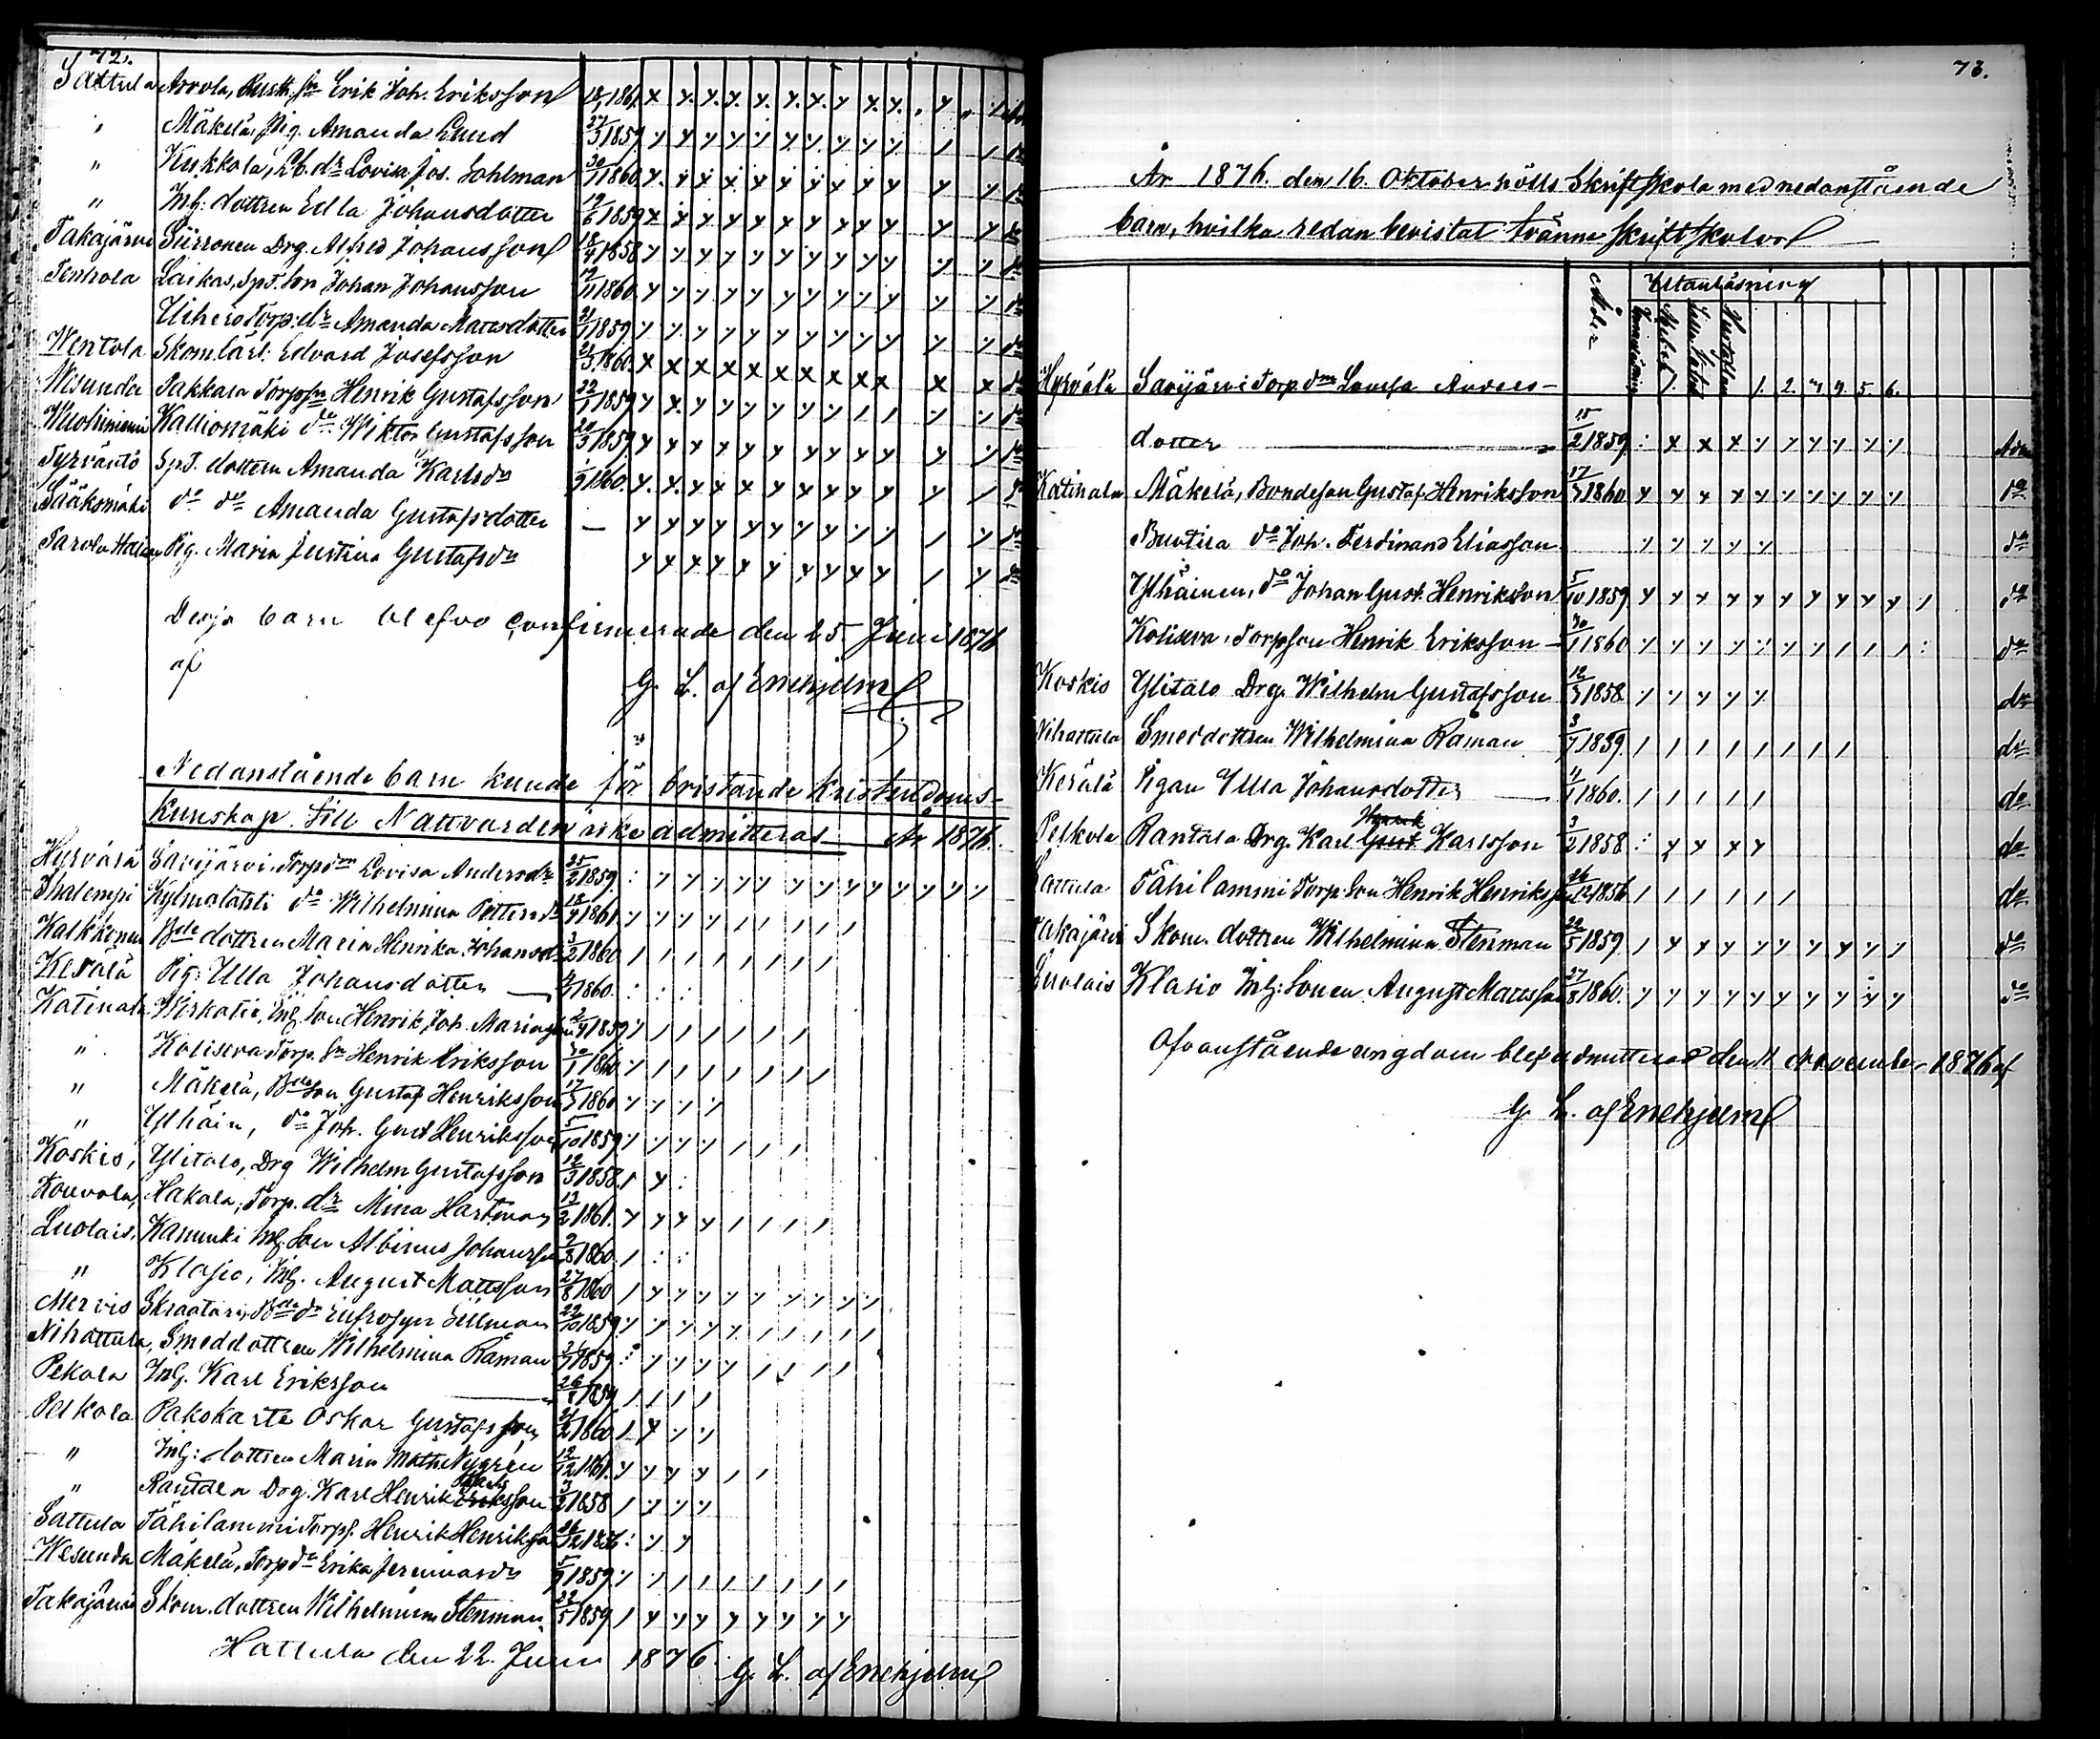 72.
Sattula Arvola, Rustk. sn Erik Joh. Eriksson 18/1 1861
" Mäkelä, Pig. Amanda Lund 27/3 1859
" Kukkola, Lb. dr Lovisa Jos. Sohlman 30/11 1860
" Inh: dottren Edla Johansdotter 19/6 1859
Takajärvi Siironen Drg. Alfred Johansson 18/4 1858
Tenhola Laikas, Spt. son Johan Johansson 12/11 1860
Uihero Torp: dr Amanda Mattsdotter 21/1 1859
Wentola Skomlärl: Edvard Josefsson 21/3 1860
Wesunda Pakkala Torpsn Henrik Gustafsson 22/1 1859
Wuohiniemi Kalliomäki do Wiktor Gustafsson 20/3 1859
Tyrväntö Spt. dottern Amanda Karlsdr 1/9 1860
Sääksmäki do do Amanda Gustafsdotter —
Parola Pig. Maria Justina Gustafsdr
Desja barn blefvo confirmerade den 25 Juni 1876
af
G. L. af Enehjelm
Nedanstående barn kunde för bristande Kristendoms-
kunskap till Nattvarden icke admitteras År 1876.
Hyrvälä Savijärvi Torpdr Lovisa Andersdr 25/2 1859
Ihalempi Kylmälahti do Wilhelmina Pettersdr 18/4 1861
Kalkkonen Bde dottren Maria Henrika Johansdr 3/2 1860
Kerälä Pig. Ulla Johansdotter 4/1 1860
Katinala Wirkatie, Inh. son Henrik Joh. 2/4 1859
" Kolisева Torp. sn Henrik Eriksson 30/1 1860
" Mäkelä, Bde son Gustaf Henriksson 17/3 1860
" Ylhäin, do Joh. Gust Henriksson 5/10 1859
Koskis, Ylitalo, Drg Wilhelm Gustafsson 12/3 1858
Kouvola, Hakala, Torp. dr Mina Hartman 13/2 1861
Luolais, Kanunki Inh. son Albinus Johansson 9/8 1860
" Klasio, Inh. August Mattsson 27/8 1860
Mervis Skraatari, Bde dr Eufrosyn Sillman 22/10 1859
Nihattula, Smeddottren Wilhelmina Råman 1859
Pekola Inh. Karl Eriksson
Pelkola Pakokarte Oskar Gustafsson 2 1860
" Inh: dottren Maria Math. Nygrén 12/12 1861
" Rantala Drg. Karl Henrik Karlsson 3/2 1858
Sattula Tähilammi Torps. Henrik Henriksson 26/12 1856
Wesunda Mäkelä, Torpdr Erika Jeremiasdr 5/9 1859
Takajärvi Skom. dottren Wilhelmina Stenman 22/5 1859
Hattula den 22. Juni 1876. G. L. af Enehjelm
73.
År 1876. den 16. Oktober hölls Skriftskola med nedanstående
barn, hvilka redan bevistat tvänne skriftskolor
Ålder Utanläsning
1. 2. 3. 4. 5. 6.
Hyrvälä Savijärvi Torpdr Lovisa Anders-
dotter 15/2 1859 Adm
Katinala Mäkelä, Bondeson Gustaf Henriksson 17/3 1860 do
Buntila do Joh. Ferdinand Eliasson do
Ylhäinen, do Johan Gust. Henriksson 5/10 1859 do
Koliseva, Torpson Henrik Eriksson 30/1 1860 do
Koskis Ylitalo Drg. Wilhelm Gustafsson 12/3 1858 do
Nihattula Smeddottren Wilhelmina Råman 3/7 1859 do
Kerälä Pigan Ulla Johansdotter 4/1 1860 do
Pelkola Rantala Drg. Karl Henrik Karlsson 3/2 1858 do
Sattula Tähilammi Torp. son Henrik Henriksson 26/12 1856 do
Takajärvi Skom. dottren Wilhelmina Stenman 22/5 1859 do
Luolais Klasio Inh: sonen August Mattsson 27/8 1860 do
Ofvanstående ungdom blef admitterad den 11 November 1876 af
G. L. af Enehjelm